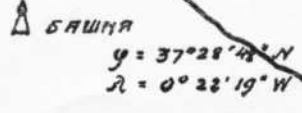 БАШНА
φ = 37°28'48" N
λ = 0°22'19" W